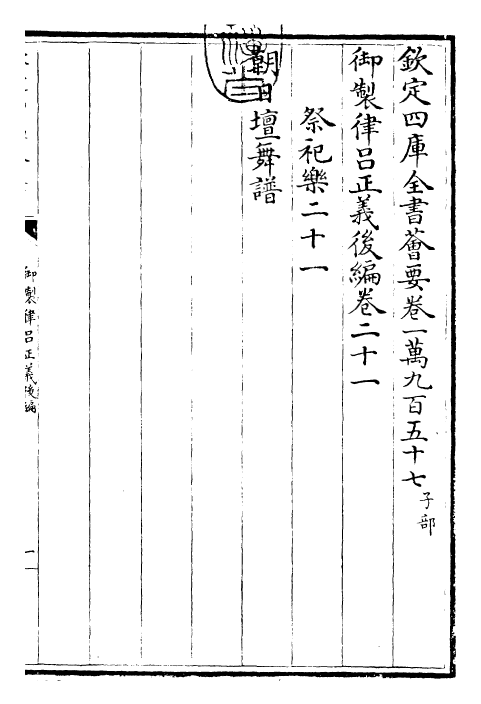 欽定四庫全書薈要卷一萬九百五十七子部
御製律呂正義後編卷二十一
祭祀樂二十一
朝日壇舞譜
御製律呂正義後編
一